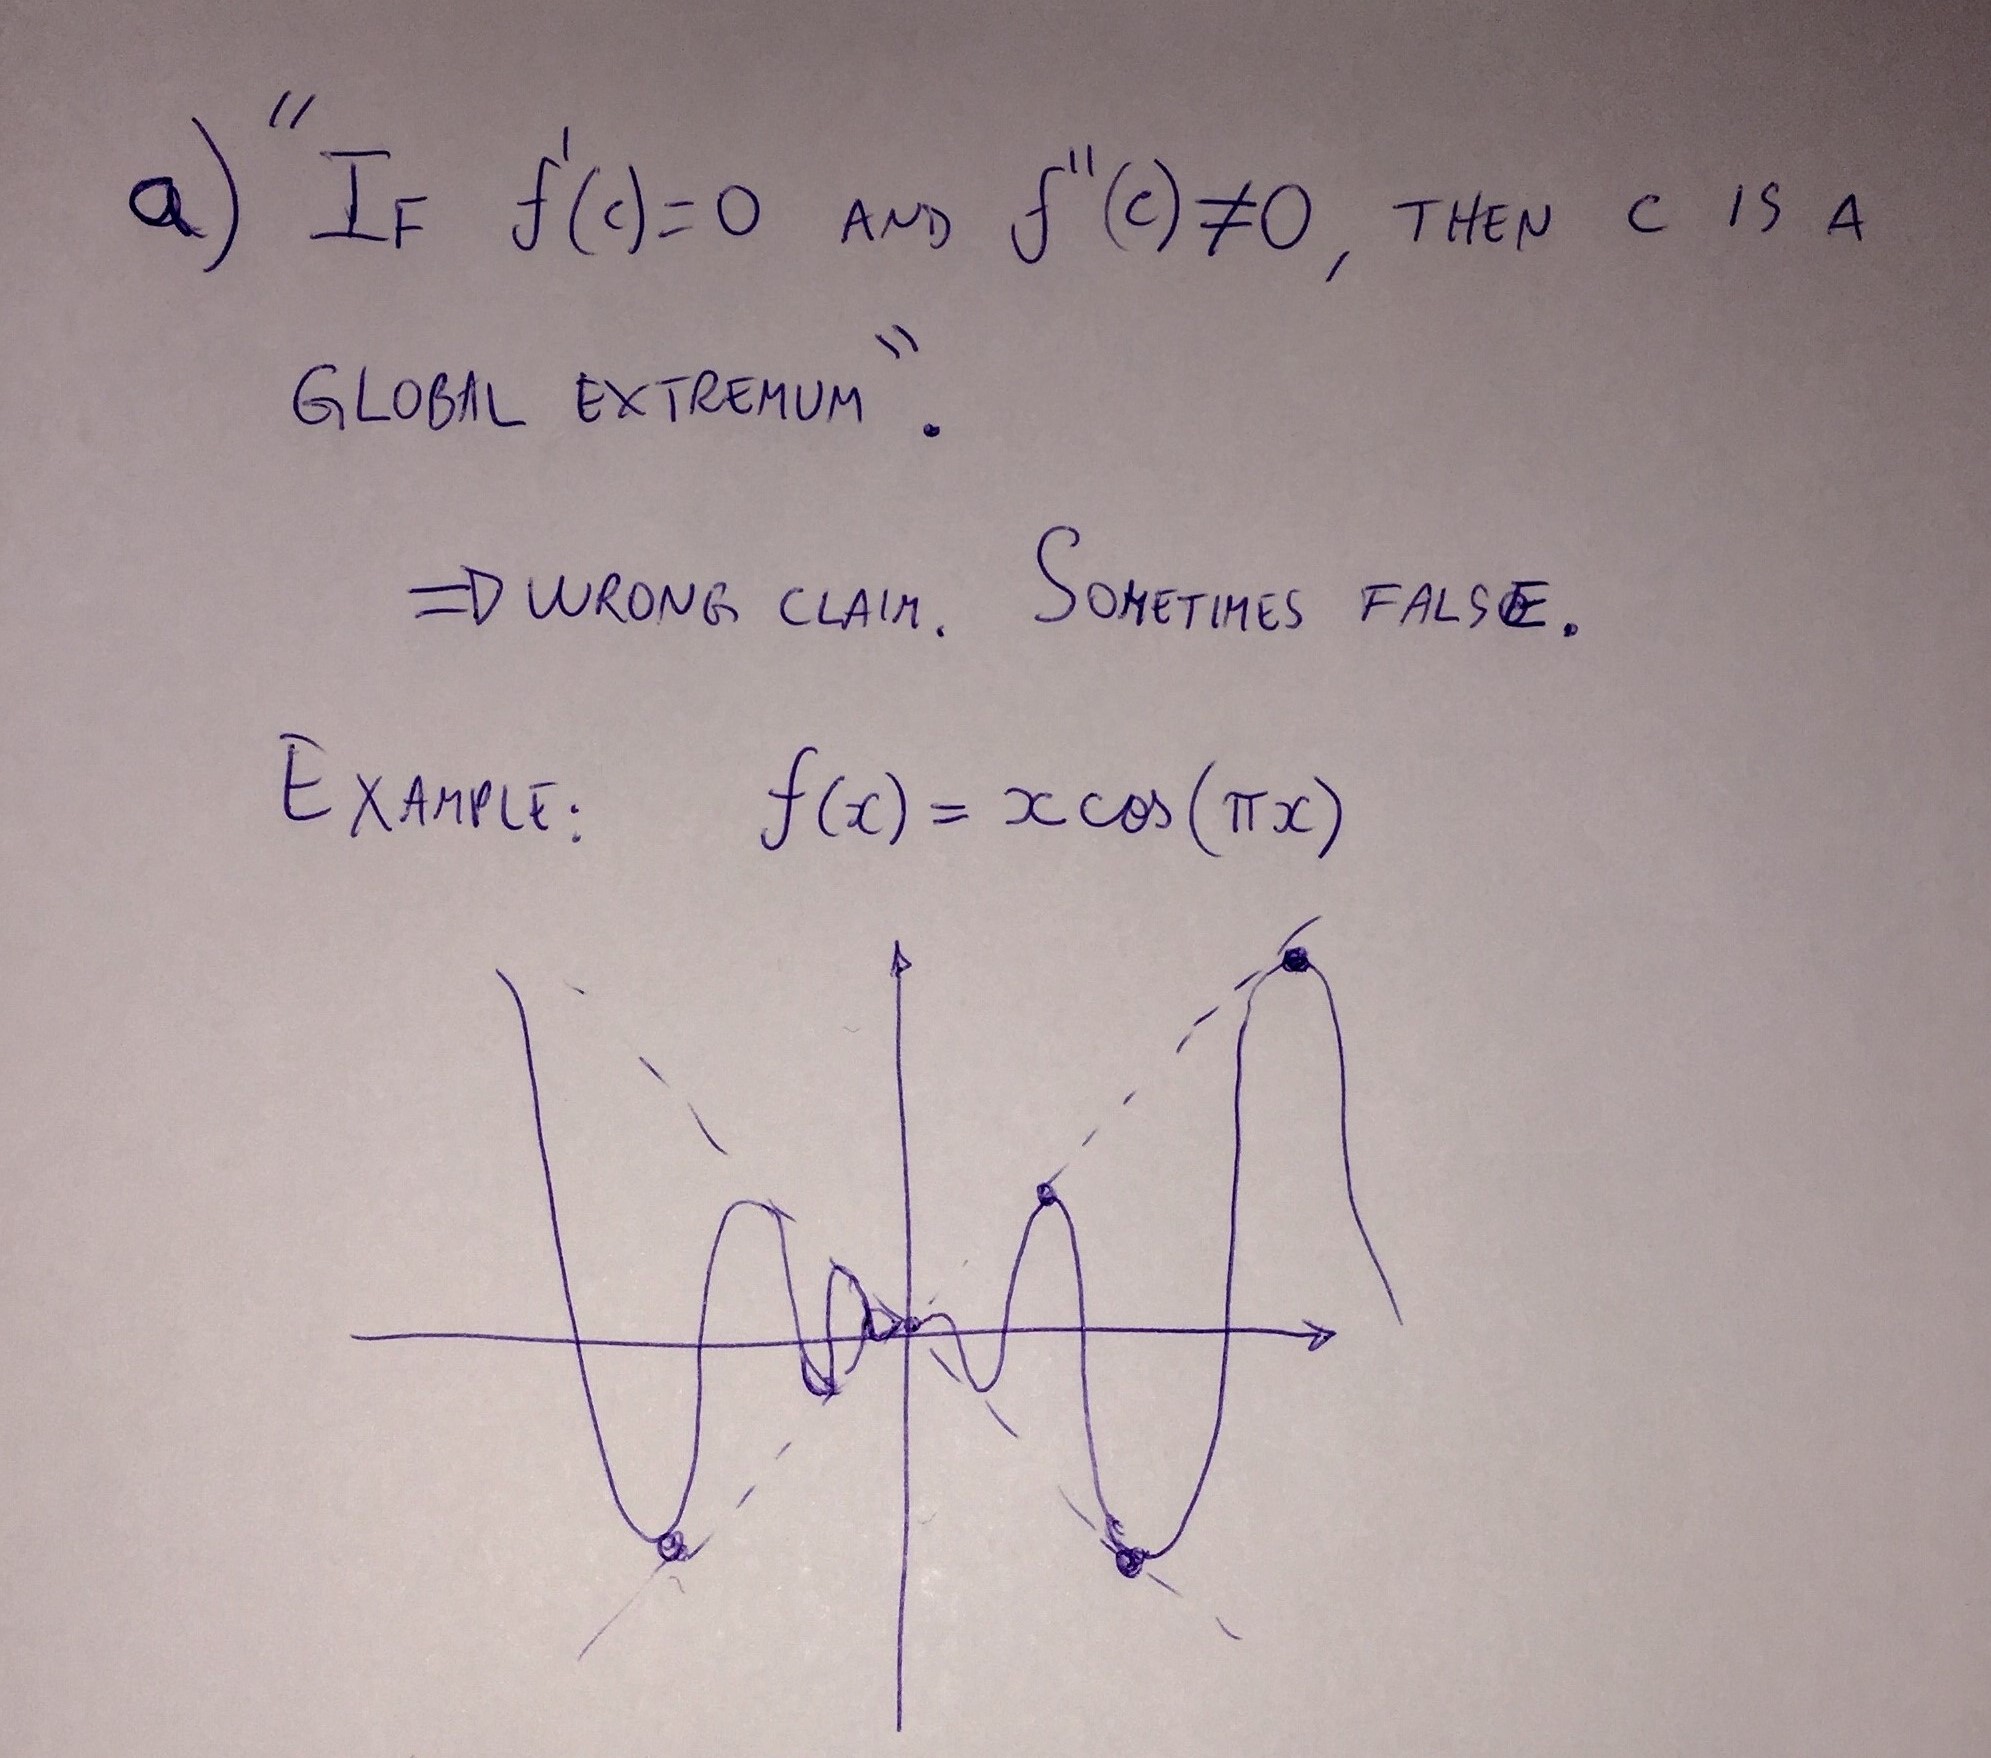 a) "IF f'(c)=0 AND f''(c)≠0, THEN C IS A
GLOBAL EXTREMUM".
⇒ WRONG CLAIM. SOMETIMES FALSE.
EXAMPLE: f(x) = x cos(πx)